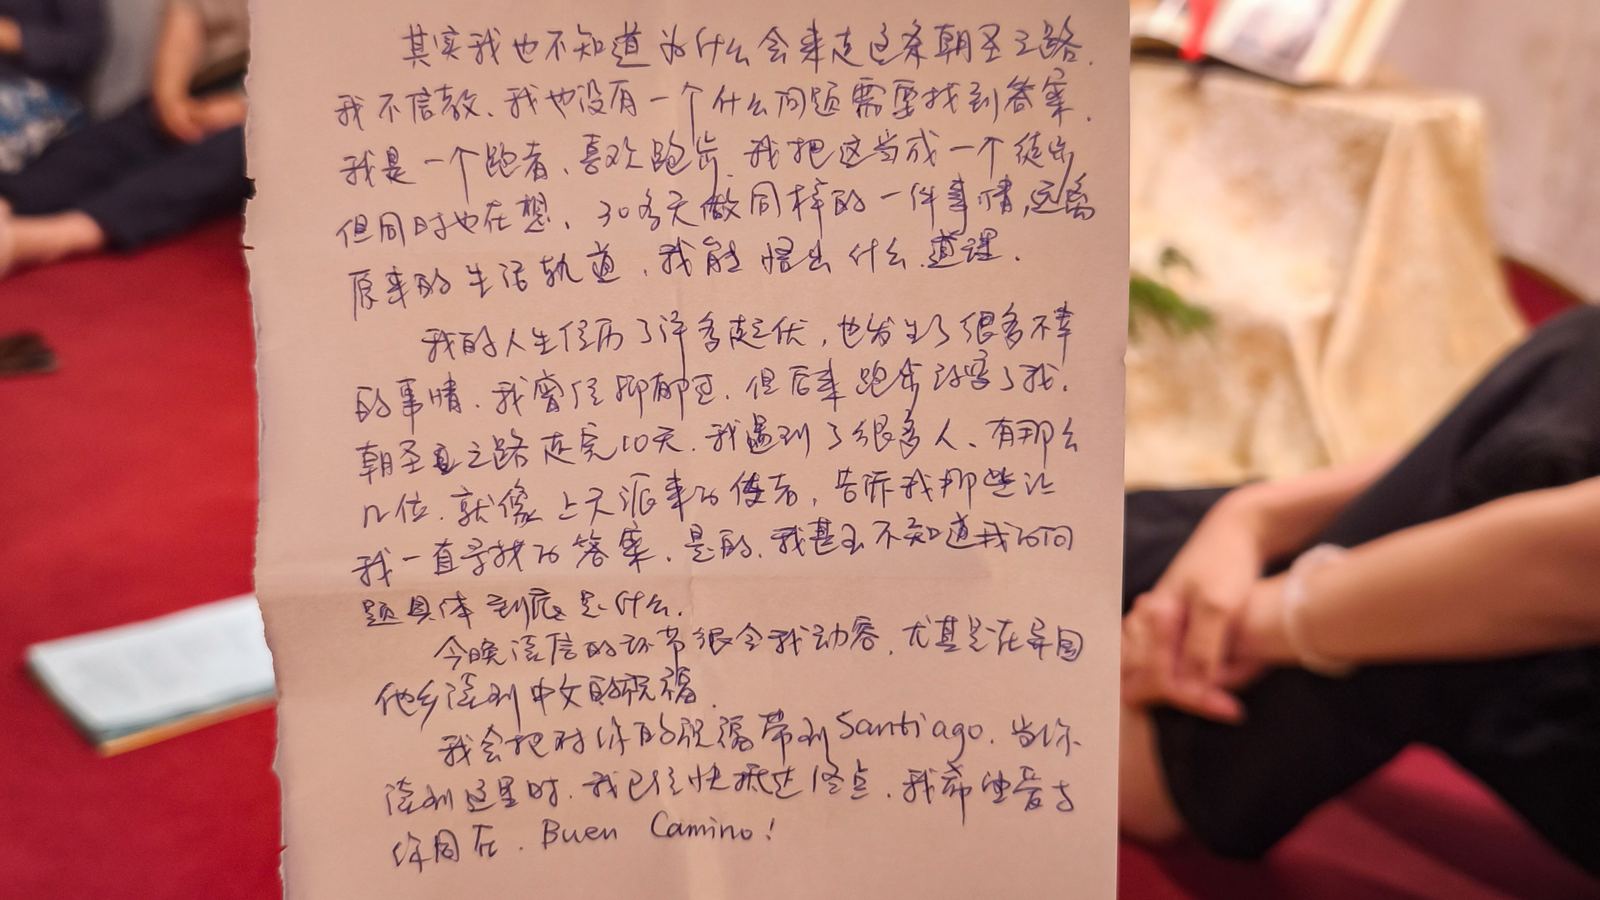 其实我也不知道为什么会来走这条朝圣之路.
我不信教、我也没有一个什么问题需要找到答案.
我是一个跑者、喜欢跑步.我把这当成一个徒步
但同时也在想、30多天做同样的一件事情,远离
原来的生活轨道,我能悟出什么道理.
我的人生经历了许多起伏,也发生了很多不幸
的事情.我曾经抑郁过.但后来跑步治愈了我.
朝圣之路走完10天.我遇到了很多人、有那么
几位.就像上天派来的使者,告诉我那些让
我一直寻找的答案.是的.我甚至不知道我的问
题具体到底是什么.
今晚读信的环节很令我动容.尤其是在异国
他乡读到中文的祝福.
我会把对你的祝福带到Santiago.当你
读到这里时.我已经快抵达终点.我希望爱与
你同在.Buen Camino!